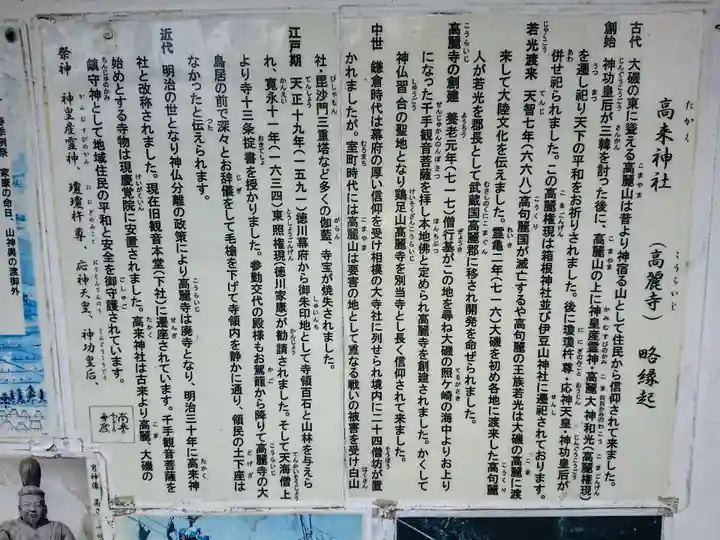 高来神社 (高麗寺) 略縁起
古代 大磯の東に聳える高麗山は昔より神宿る山として住民から信仰されて来ました。
創始 神功皇后が三韓を討った後に、高麗山の上に神皇産霊神・高麗大神和光(高麗権現)
を遷し祀り天下の平和をお祈りされました。後に瓊瓊杵尊・応神天皇・神功皇后が
併せ祀られました。この高麗権現は箱根神社並び伊豆山神社に遷祀ております。
若光渡来 天智七年(六六八)高句麗国が滅亡するや高句麗の王族若光は大磯の高麗に渡
来して大陸文化を伝えました。霊亀二年(七一六)大磯を初め各地に渡来した高句麗
人が若光を郡長として武蔵国高麗郡に移され開発を命ぜられました。
高麗寺の創建 養老元年(七一七)僧行基がこの地を尋ね大磯の照ケ崎の海中よりお上り
になった千手観音菩薩を拝し本地佛と定められ高麗寺を創建されました。かくして
神仏習合の聖地となり鶏足山高麗寺を別当寺とし長く信仰されて来ました。
中世 鎌倉時代は幕府の厚い信仰を受け相模の大寺社に列せられ境内に二十四僧坊が置
かれましたが、室町時代には高麗山は要害の地として重なる戦いの被害を受け白山
社・毘沙門三重塔など多くの伽藍、寺宝が焼失されました。
江戸期 天正十九年(一五九一)徳川幕府から御朱印地として寺領百石と山林を与えら
れ、寛永十一年(一六三四)東照権現(徳川家康)が勧請されました。そして天海僧上
より寺十三条掟書を授かりました。参勤交代の殿様もお駕籠から降りて高麗寺の大
鳥居の前で深々とお辞儀をして毛槍を下げて寺領内を静かに通り、領民の土下座は
なかったと伝えられます。
近代 明治の世となり神仏分離の政策により高麗寺は廃寺となり、明治三十年に高来神
社と改称されました。現在旧観音本堂(下社)に遷座されています。千手観音菩薩を
始めとする寺物は現慶覚院に安置されました。高来神社は古来より高麗、大磯の
鎮守神として地域住民の平和と安全を御守護されています。
祭神 神皇産霊神、瓊瓊杵尊、応神天皇、神功皇后、
春季例祭 家康の命日、山神輿の渡御外